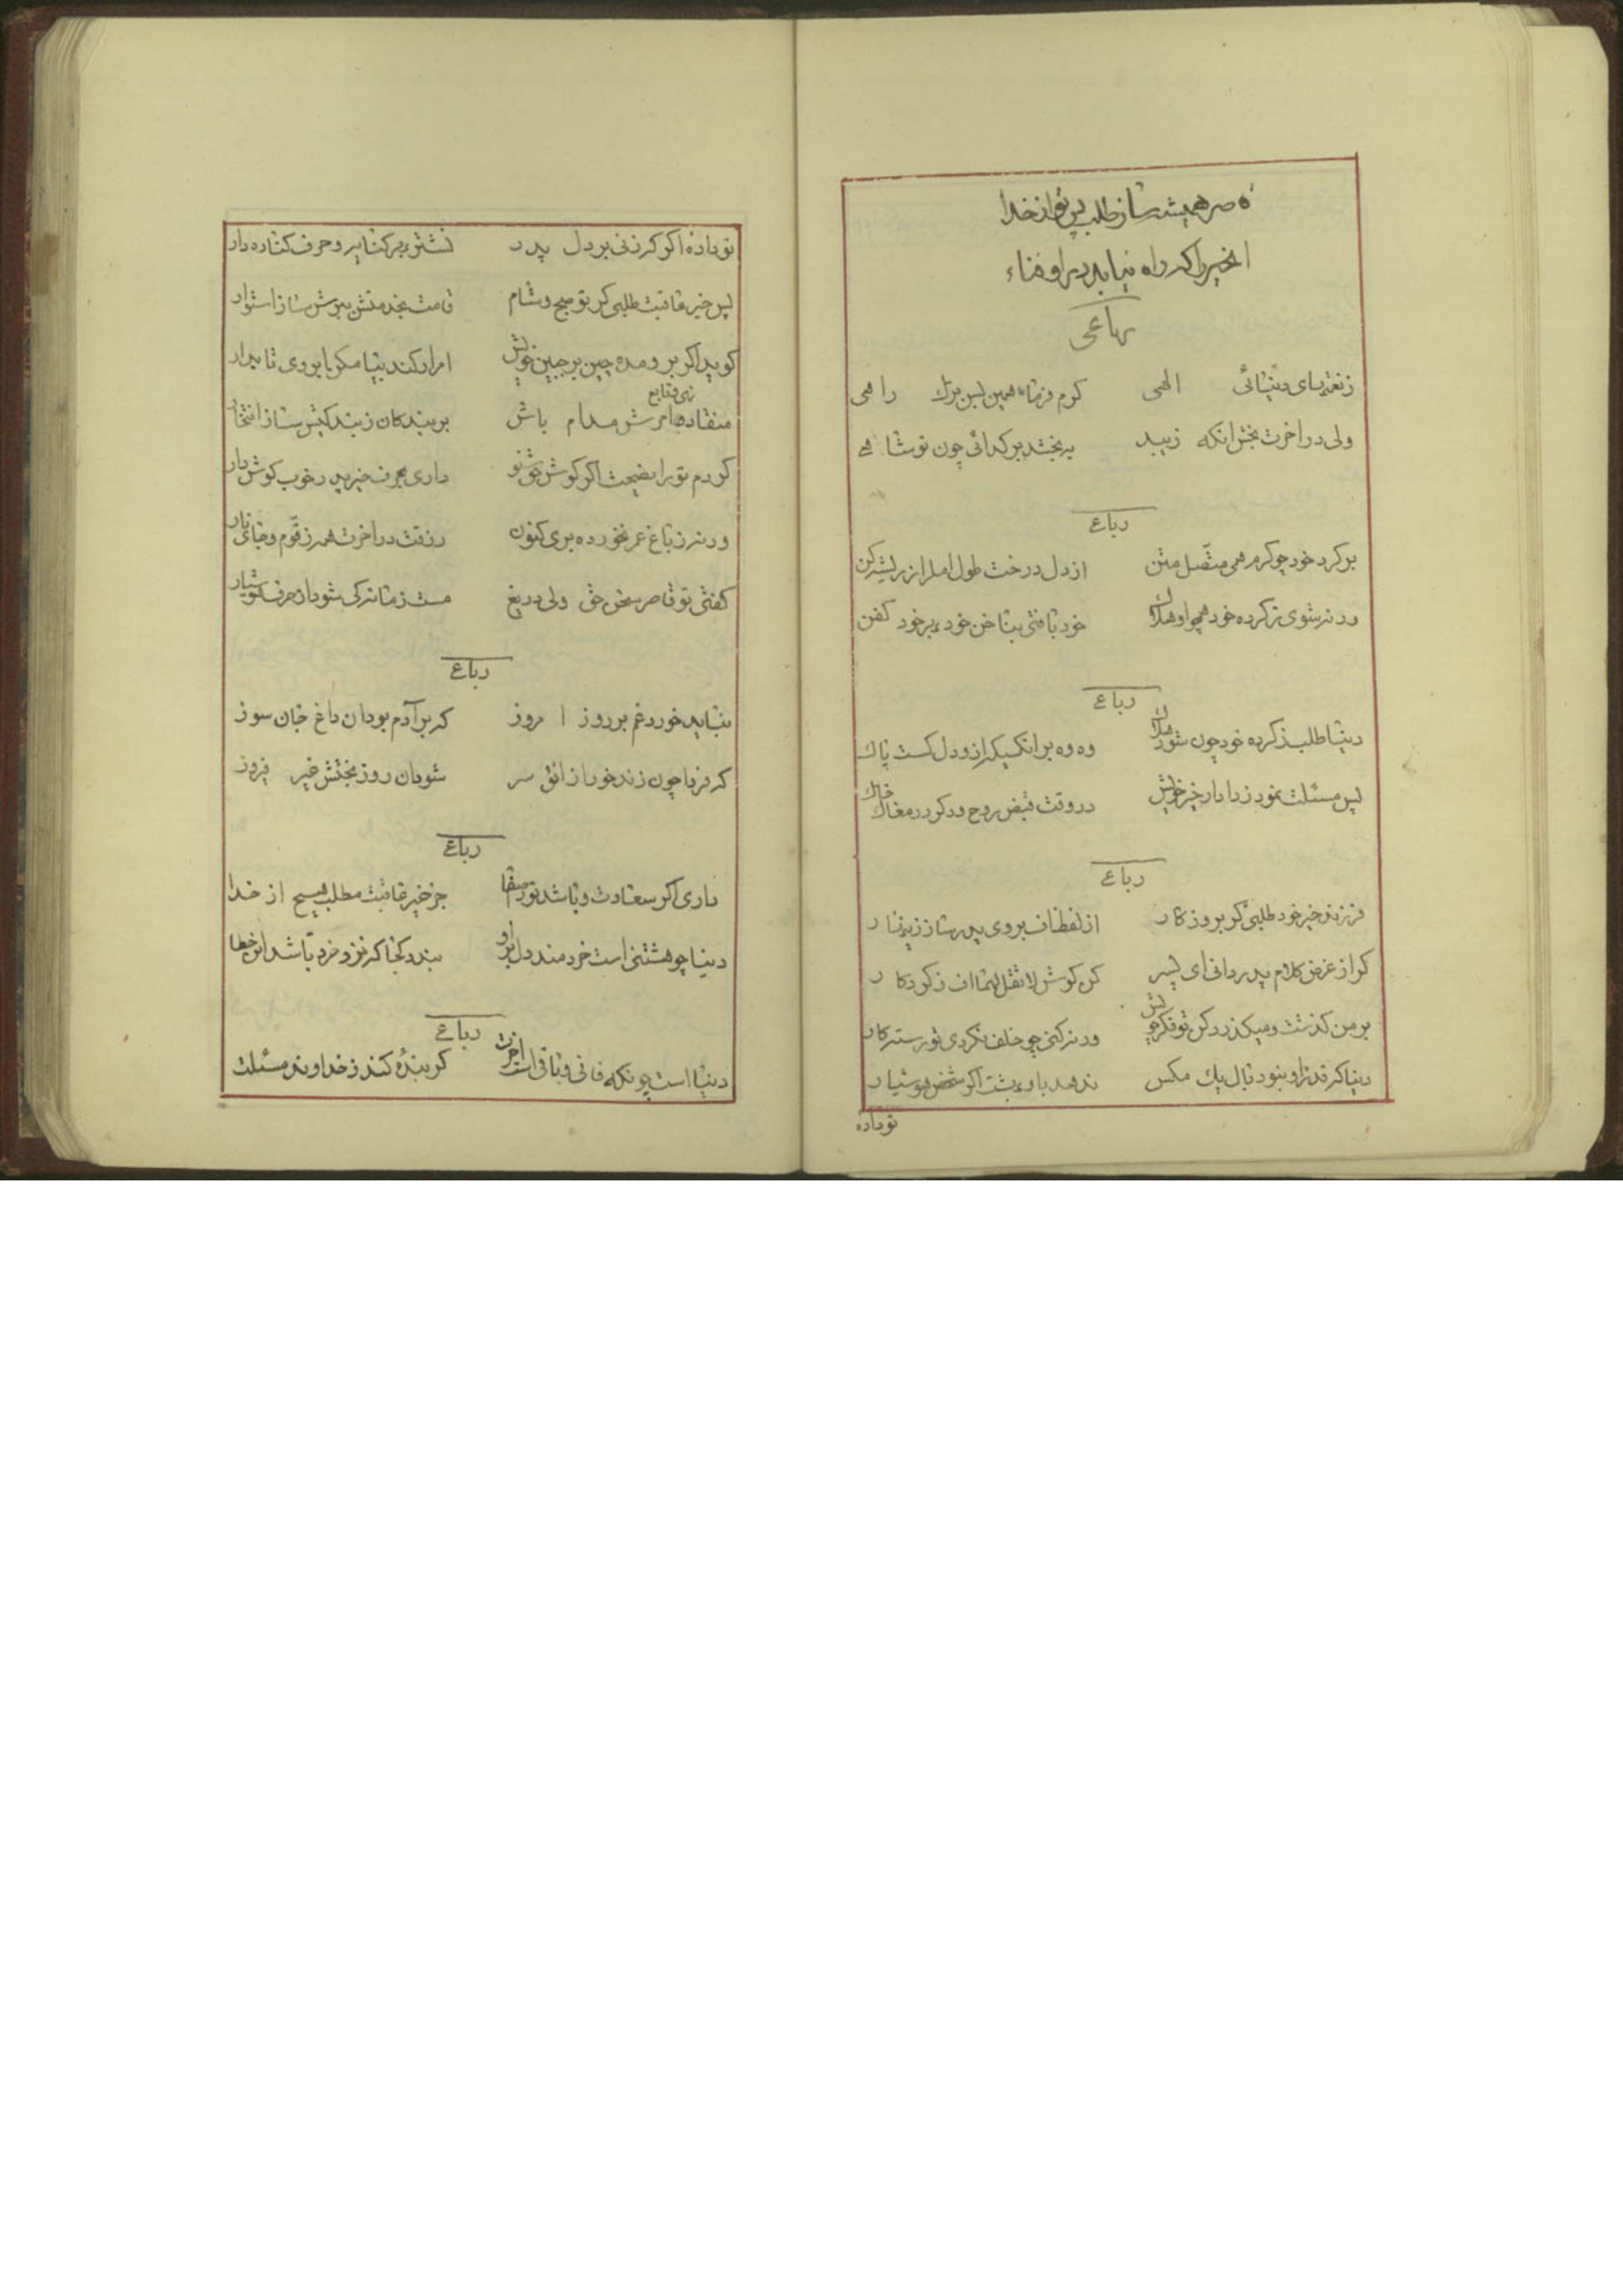 قاصر همیشه ساز طلب پس تو از خدا
انخیر را که راه نیابد در او فناء
رباعی
زنعمتهای دنیائی الهی کرم فرما همین بس برك راهی
ولی در اخرت بخش انکه زیبد به بخشد بر کدائی چون تو شاهی
رباع
بر کرد خود چو کرم همی متصّل متن از دل درخت طول امل را ز ریشه کن
ورنه شوی ز کرده خود همچو او هلاك خود بافتی بناخن خود بر خود کفن
رباع
دنیا طلب ز کرده خود چون شود هلاك وه وه بر انکسیکه از و دل کست پاك
پس مسئلت نمود ز دادار خیر خویش در وقت قبض روح و در کرد در مغاك خاك
رباع
فرزند خیر خود طلبی کر بروز کار از لفظ اف بروی پدر ساز زینهار
کر از غرض کلام پدر دانی ای پسر کن کوش لا تقل لهما اف ز کردکار
بر من کذشت و میکذرد کن تو فکر خویش ورنه کنی چو خلف نکردی تو رستکار
دنیا که قدر او بنود بال یك مکس ندهد باو پشت اکر شخص هوشیار
تو داده
تو داده اکر کزنی بر دل پدر نشتر بر کنایه و حرف کناره دار
پس خیر عاقبت طلبی کر تو صبح و شام قامت بخدمتش بپرش ساز استوار
کوید اکر برو مده چین بر جبین خویش امر او کند بیا مکن ابروی تابدار
منقاد و امرش مدام باش نهی و تابع بر بندکان زبندکیش ساز افتخار
کردم تو را نصیحت اکر کوش حق شنو داری بحرف خیر پدر خوب کوش دار
ورنه ز باغ عمر نخورده بری کنون رزقت در اخرت همه زقّوم و جای نار
کفتی تو قاصر سخن حق ولی دریغ مست زمانه کی شود از حرف هوشیار
رباع
نباید خورد غم بر روز امروز که بر آدم بود ان داغ جان سوز
که فردا چون زند خور از افق سر شود ان روز بختش خیر فیروز
رباع
داری اکر سعادت و باشد تو را صفا جز خیر عاقبت مطلب هیچ از خدا
دنیا چو هشتنی است خردمند دل بر او بندد کجا که نزد خرد باشد این خطا
رباع
دنیا است چونکه فانی و باقی است اخرت کر بندهٔ کند ز خداوند مسئلت